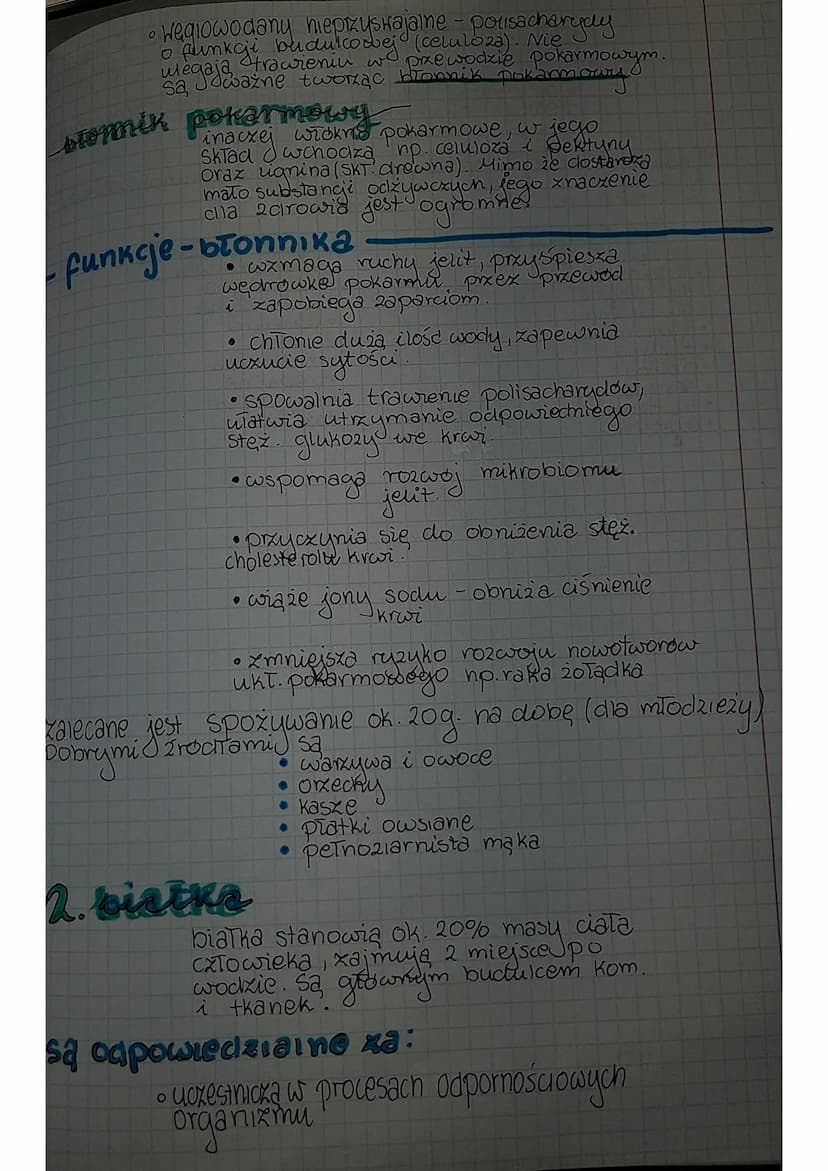 • węglowodany nieprzyswajalne - polisacharydy
o funkcji budulcowej (celuloza). Nie
ulegają trawieniu w przewodzie pokarmowym.
są ważne tworząc błonnik pokarmowy
błonnik pokarmowy
inaczej włókno pokarmowe, w jego
skład wchodzą np. celuloza i pektyny
oraz lignina (skł. drewna). Mimo że dostarcza
mało substancji odżywczych, jego znaczenie
dla zdrowia jest ogromne
- funkcje - błonnika
• wzmaga ruchy jelit, przyśpiesza
wędrówkę pokarmu przez przewód
i zapobiega zaparciom.
• chłonie dużą ilość wody, zapewnia
uczucie sytości.
• spowalnia trawienie polisacharydów,
ułatwia utrzymanie odpowiedniego
stęż. glukozy we krwi.
• wspomaga rozwój mikrobiomu
jelit.
• przyczynia się do obniżenia stęż.
cholesterolu krwi.
• wiąże jony sodu - obniża ciśnienie
krwi
• zmniejsza ryzyko rozwoju nowotworów
ukł. pokarmowego np. raka żołądka
zalecane jest spożywanie ok. 20g. na dobę (dla młodzieży)
Dobrymi źródłami są
• warzywa i owoce
• orzechy
• kasze
• płatki owsiane
• pełnoziarnista mąka
2. białka
białka stanowią ok. 20% masy ciała
człowieka, zajmują 2 miejsce po
wodzie. Są głównym budulcem kom.
i tkanek.
są odpowiedzialne za:
• uczestniczą w procesach odpornościowych
organizmu